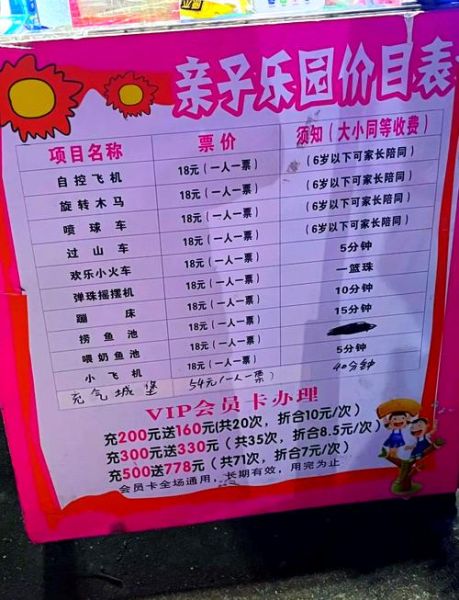 亲子乐园价目表
项目名称 票价 须知（大小同等收费）
自控飞机 18元（一人一票） （6岁以下可家长陪同）
旋转木马 18元（一人一票） （6岁以下可家长陪同）
喷球车 18元（一人一票） （6岁以下可家长陪同）
过山车 18元（一人一票） （6岁以下可家长陪同）
欢乐小火车 18元（一人一票） 5分钟
弹珠摇摆机 18元（一人一票） 一篮珠
蹦床 18元（一人一票） 10分钟
捞鱼池 18元（一人一票） 15分钟
喂奶鱼池 18元（一人一票）
小飞机 18元（一人一票） 5分钟
充气城堡 54元（一人一票） 40分钟
VIP会员卡办理
充200元送160元（共20次，折合10元/次）
充300元送330元（共35次，折合8.5元/次）
充500送778元（共71次，折合7元/次）
会员卡全场通用，长期有效，用完为止